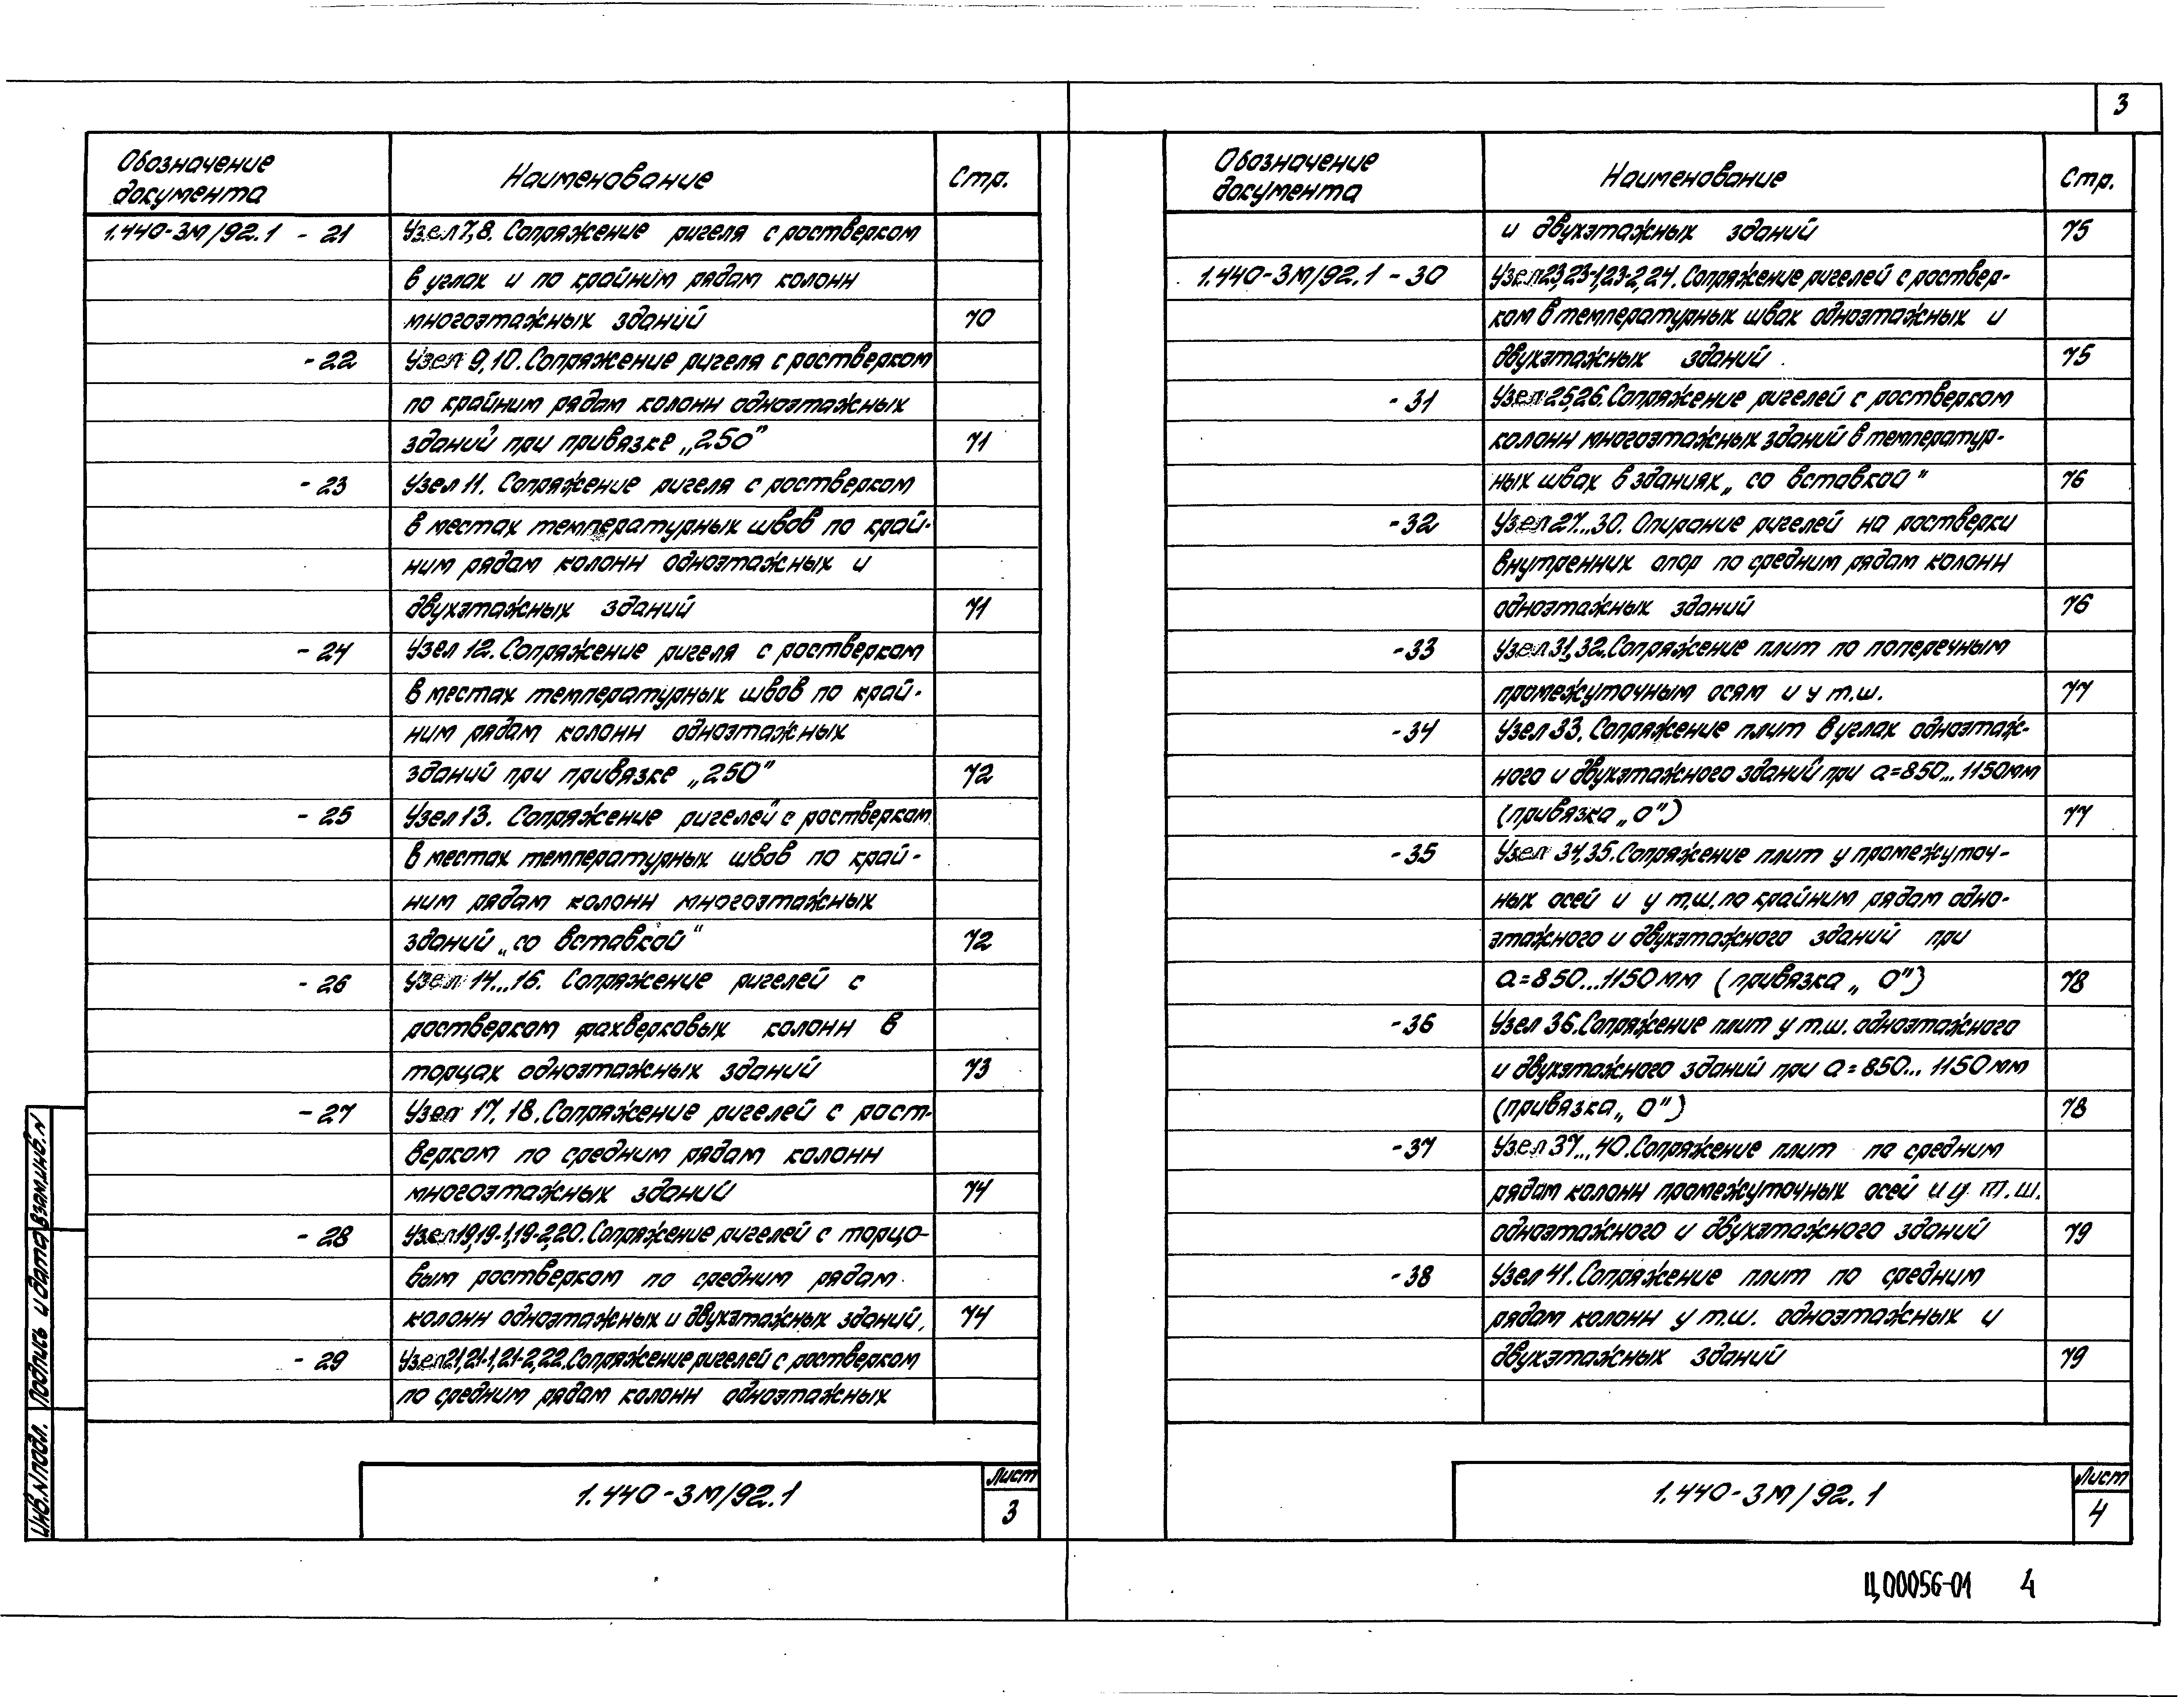 3
Обозначение документа Наименование Стр.
1.440-3М/92.1 - 21 Узел 7,8. Сопряжение ригеля с ростверком
в углах и по крайним рядам колонн
многоэтажных зданий 70
- 22 Узел 9,10. Сопряжение ригеля с ростверком
по крайним рядам колонн одноэтажных
зданий при привязке „250" 71
- 23 Узел 11. Сопряжение ригеля с ростверком
в местах температурных швов по край-
ним рядам колонн одноэтажных и
двухэтажных зданий 71
- 24 Узел 12. Сопряжение ригеля с ростверком
в местах температурных швов по край-
ним рядам колонн одноэтажных
зданий при привязке „250" 72
- 25 Узел 13. Сопряжение ригелей с ростверком
в местах температурных швов по край-
ним рядам колонн многоэтажных
зданий „со вставкой" 72
- 26 Узел 14...16. Сопряжение ригелей с
ростверком фахверковых колонн в
торцах одноэтажных зданий 73
- 27 Узел 17, 18. Сопряжение ригелей с рост-
верком по средним рядам колонн
многоэтажных зданий 74
- 28 Узел 19,19-1,19-2,20. Сопряжение ригелей с торцо-
вым ростверком по средним рядам
колонн одноэтажных и двухэтажных зданий. 74
- 29 Узел 21,21-1,21-2,22. Сопряжение ригелей с ростверком
по средним рядам колонн одноэтажных
1.440-3М/92.1
Лист
3
Инв.N подл. Подпись и дата Взам.инв.N
Обозначение документа Наименование Стр.
и двухэтажных зданий 75
1.440-3М/92.1 - 30 Узел 23,23-1,23-2,24. Сопряжение ригелей с роствер-
ком в температурных швах одноэтажных и
двухэтажных зданий 75
- 31 Узел 25,26. Сопряжение ригелей с ростверком
колонн многоэтажных зданий в температур-
ных швах в зданиях „ со вставкой " 76
- 32 Узел 27...30. Опирание ригелей на ростверки
внутренних опор по средним рядам колонн
одноэтажных зданий 76
- 33 Узел 31,32. Сопряжение плит по поперечным
промежуточным осям и у т.ш. 77
- 34 Узел 33. Сопряжение плит в углах одноэтаж-
ного и двухэтажного зданий при а=850...1150мм
(привязка „0") 77
- 35 Узел 34,35. Сопряжение плит у промежуточ-
ных осей и у т.ш. по крайним рядам одно-
этажного и двухэтажного зданий при
а=850...1150мм (привязка „ 0") 78
- 36 Узел 36. Сопряжение плит у т.ш. одноэтажного
и двухэтажного зданий при а=850...1150мм
(привязка „ 0") 78
- 37 Узел 37...40. Сопряжение плит по средним
рядам колонн промежуточных осей и у т.ш.
одноэтажного и двухэтажного зданий 79
- 38 Узел 41. Сопряжение плит по средним
рядам колонн у т.ш. одноэтажных и
двухэтажных зданий 79
1.440-3М/92.1
Лист
4
Ц00056-01 4